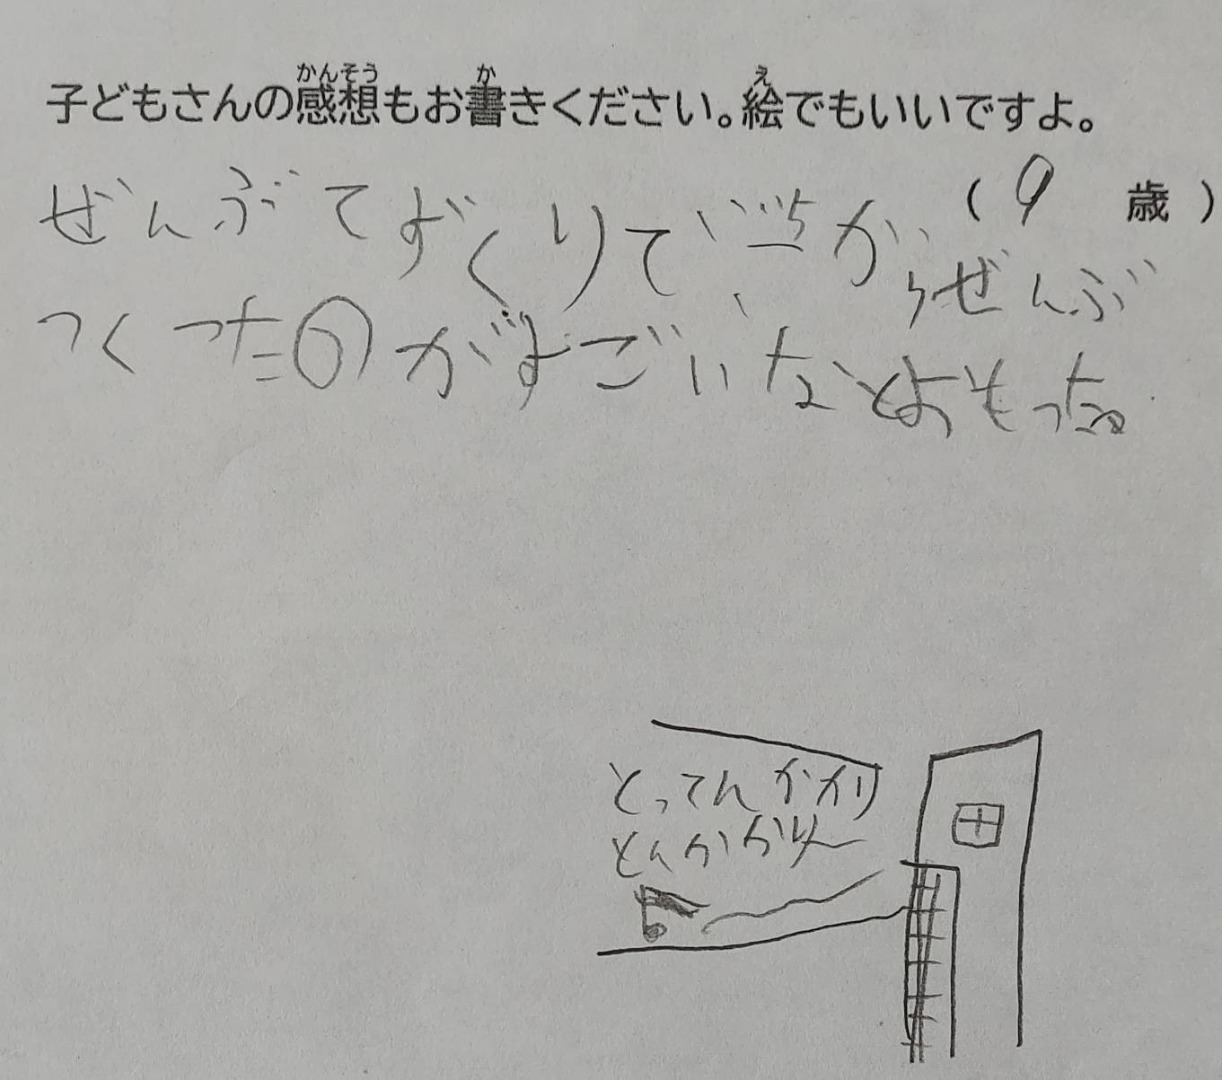 子どもさんの感想もお書きください。絵でもいいですよ。
(9歳)
ぜんぶてずくりで、からぜんぶ
つくったのがすごいなとおもった。
とってんかかり
とんかかり